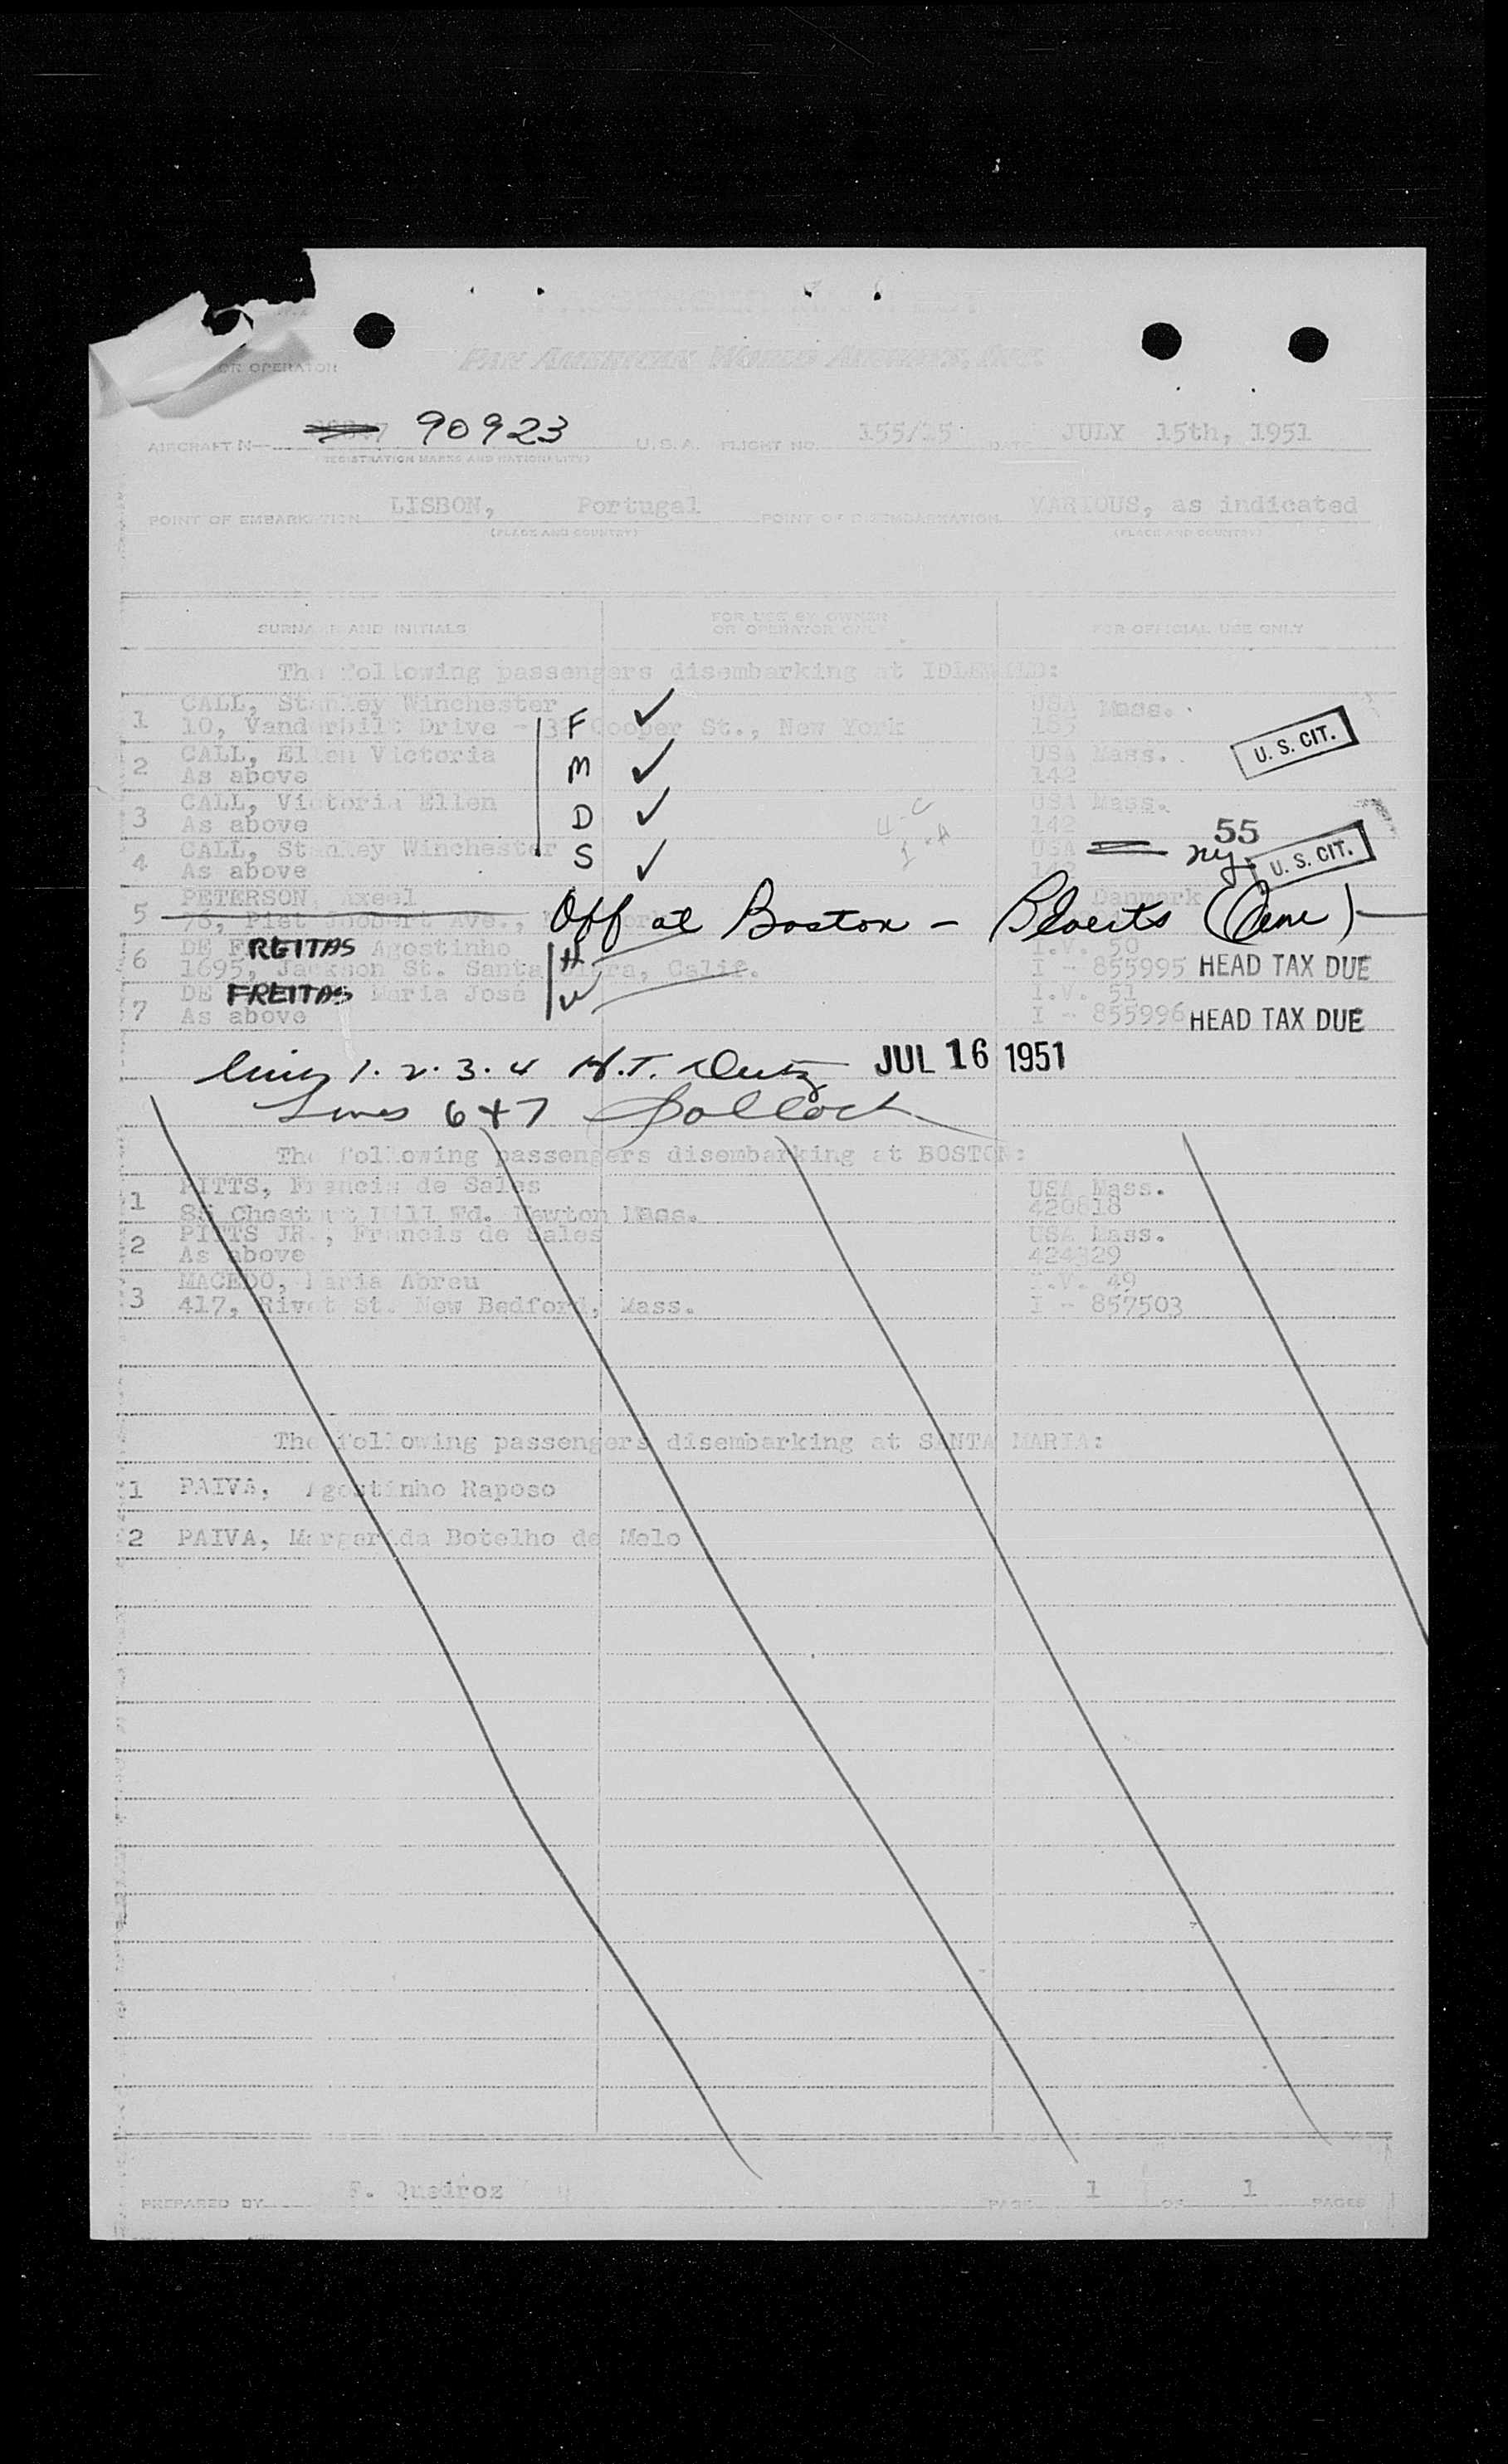 OR OPERATOR PAN AMERICAN WORLD AIRWAYS, INC.
AIRCRAFT N— 90923 U.S.A. FLIGHT NO. 155/15 DATE JULY 15th, 1951
(REGISTRATION MARKS AND NATIONALITY)
POINT OF EMBARKATION LISBON, Portugal POINT OF DISEMBARKATION VARIOUS, as indicated
(PLACE AND COUNTRY) (PLACE AND COUNTRY)
SURNAME AND INITIALS FOR USE BY OWNER OR OPERATOR ONLY FOR OFFICIAL USE ONLY
The following passengers disembarking at IDLEWILD:
1 CALL, Stanley Winchester F ✓ USA Mass.
10, Vanderbilt Drive - Cooper St., New York 153
2 CALL, Ellen Victoria M ✓ USA Mass. U. S. CIT.
As above 142
3 CALL, Victoria Ellen D ✓ USA Mass.
As above 142 55
4 CALL, Stanley Winchester S ✓ USA ny. U. S. CIT.
As above 142
5 PETERSON, Axeel Off at Boston - (Dane) Danmark
76, Piet Ave.,
6 DE FREITAS Agostinho H I.V. 50
1695, Jackson St. Santa Clara, Calif. I - 855995 HEAD TAX DUE
7 DE FREITAS Maria José W I.V. 51
As above I - 855996 HEAD TAX DUE
1. 2. 3. 4 JUL 16 1951
Lines 6 + 7 Pollock
The following passengers disembarking at BOSTON:
1 PITTS, Francis de Sales USA Mass.
85 Chestnut Hill Rd. Newton Mass. 420818
2 PITTS JR., Francis de Sales USA Mass.
As above 424329
3 MACEDO, Maria Abreu I.V. 49
417, Rivet St. New Bedford, Mass. I - 857503
The following passengers disembarking at SANTA MARIA:
1 PAIVA, Agostinho Raposo
2 PAIVA, Margarida Botelho de Melo
PREPARED BY F. Queiroz PAGE 1 OF 1 PAGES